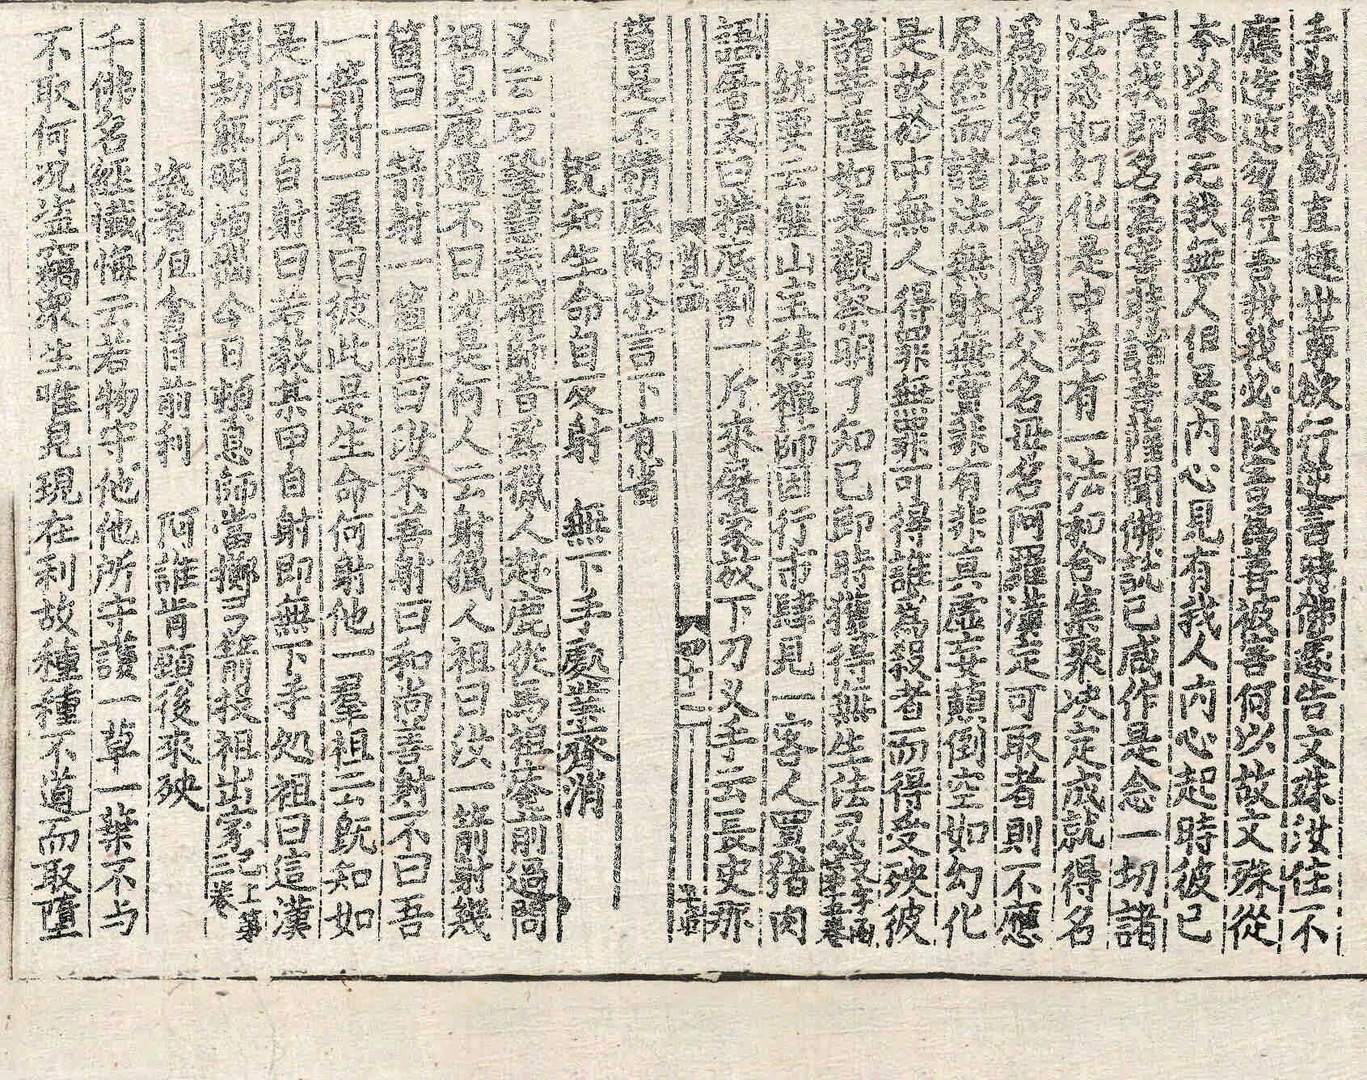 手執利劒直趣世尊欲行逆害時佛遙告文殊汝住不
應造逆勿得害我我必被害爲善被害何以故文殊從
本以來无我無人但是內心見有我人內心起時彼已
害我即名爲害時諸菩薩聞佛說已咸作是念一切諸
法悉如幻化是中若有一法和合集聚決定成就得名
爲佛名法名僧名父名母名阿羅漢定可取者則不應
尽然而諸法無躰無實非有非真虛妄顛倒空如幻化
是故於中無人得罪無罪可得誰為殺者而得受殃彼
諸菩薩如是觀察明了知已即時獲得無生法忍
統要云盤山宝積禪師因行市肆見一客人買猪肉
語屠家曰精底割一斤來屠家放下刀叉手云長史那
箇是不精底師於言下有省
旣知生命自反射 無下手處業齊消
又云石鞏慧藏禪師昔爲獵人趂鹿從馬祖庵前過問
祖見鹿過不曰汝是何人云射獵人祖曰汝一箭射幾
箇曰一箭射一箇祖曰汝不善射曰和尚善射不曰吾
一箭射一羣曰彼此是生命何射他一羣祖云旣知如
是何不自射曰若敎某甲自射即無下手処祖曰這漢
曠劫無明煩惱今日頓息師當擲弓箭投祖出家已上第三卷
盜者但貪目前利 阿誰肯顧後來殃
千佛名經懺悔云若物守他他所守護一草一葉不与
不取何况盜竊衆生唯見現在利故種種不道而取墮